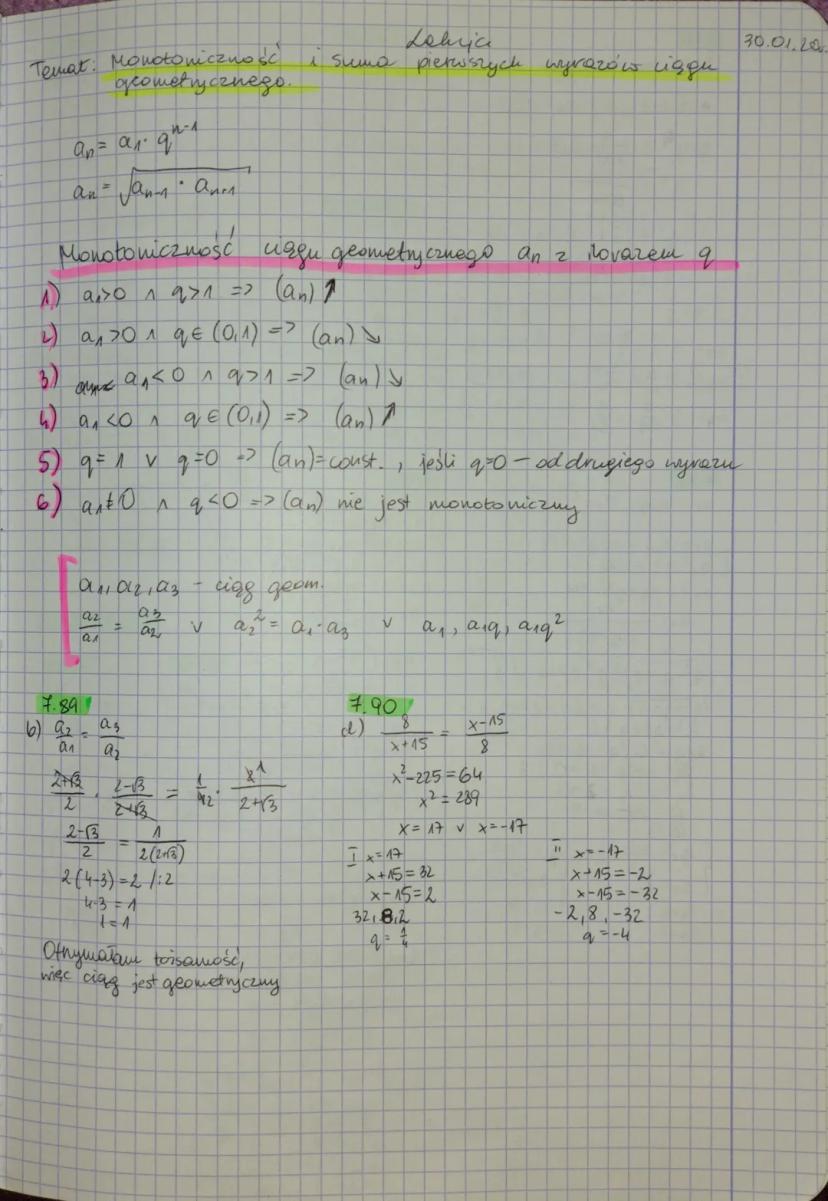 Lekcja 30.01.20
Temat: Monotoniczność i suma pierwszych wyrazów ciągu
geometrycznego.
aₙ = a₁ · qⁿ⁻¹
aₙ = √(aₙ₋₁ · aₙ₊₁)
Monotoniczność ciągu geometrycznego aₙ z ilorazem q
1) a₁>0 ∧ q>1 => (aₙ) ↗
2) a₁>0 ∧ q∈(0,1) => (aₙ) ↘
3) a₁<0 ∧ q>1 => (aₙ) ↘
4) a₁<0 ∧ q∈(0,1) => (aₙ) ↗
5) q=1 ∨ q=0 => (aₙ)=const. , jeśli q=0 – od drugiego wyrazu
6) a₁≠0 ∧ q<0 => (aₙ) nie jest monotoniczny
a₁, a₂, a₃ – ciąg geom.
a₂/a₁ = a₃/a₂ ∨ a₂² = a₁·a₃ ∨ a₁, a₁q, a₁q²
7.89
b) a₂/a₁ = a₃/a₂
(2+√3)/2 · (2-√3)/(2+√3) = 1/4 2 · 2 1/(2+√3)
(2-√3)/2 = 1/(2(2+√3))
2(4-3)=2 /:2
4-3=1
1=1
Otrzymałam tożsamość,
więc ciąg jest geometryczny
7.90
d) 8/(x+15) = (x-15)/8
x²-225=64
x²=289
x=17 ∨ x=-17
I x=17
x+15=32
x-15=2
32, 8, 2
q=1/4
II x=-17
x+15=-2
x-15=-32
-2, 8, -32
q=-4